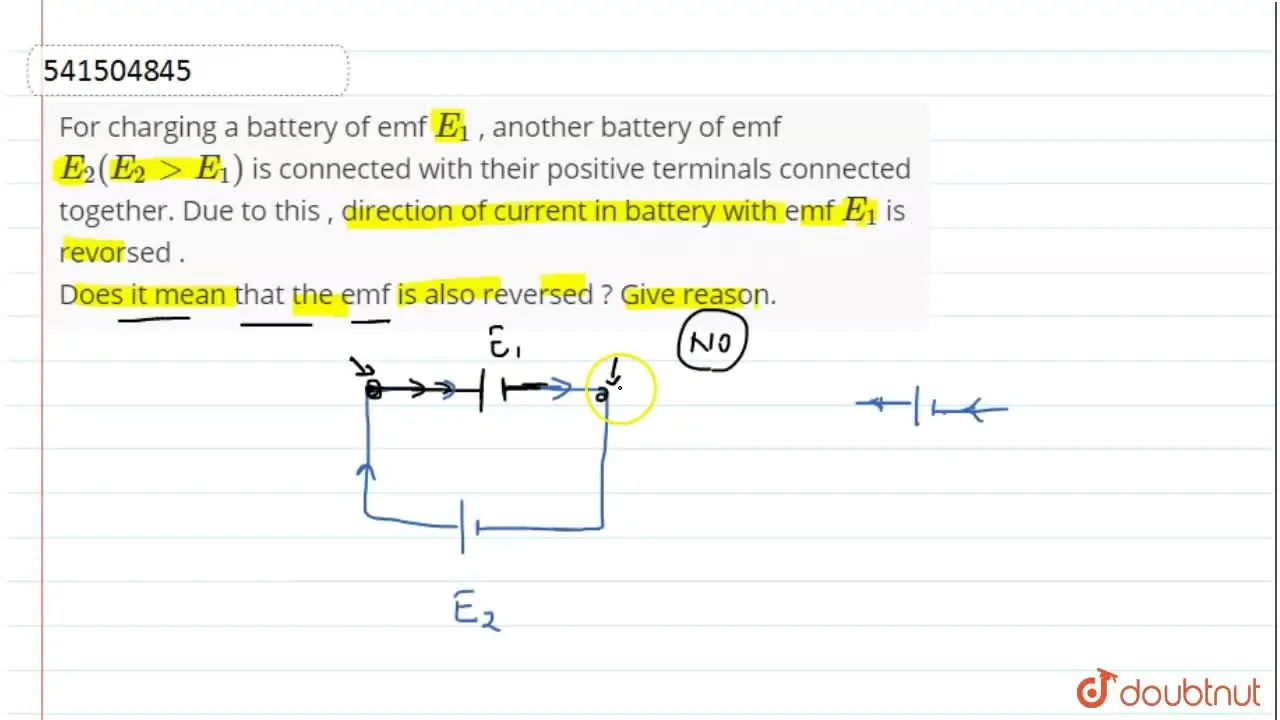 541504845
For charging a battery of emf E₁ , another battery of emf
E₂(E₂ > E₁) is connected with their positive terminals connected
together. Due to this , direction of current in battery with emf E₁ is
revorsed .
Does it mean that the emf is also reversed ? Give reason.
E₁
NO
E₂
doubtnut